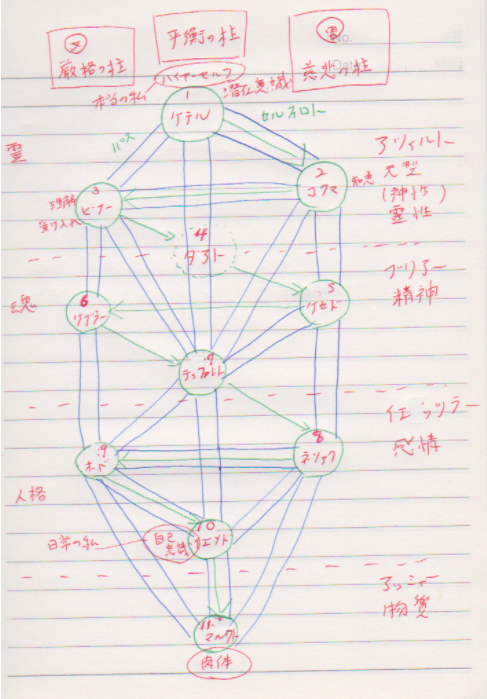 女
厳格の柱
平衡の柱
男
慈悲の柱
ハイヤーセルフ
本当の私
潜在意識
1
ケテル
パス
セルフロト
霊
アツィルト
元型
(神性)
霊性
3
ビナー
理解
受け入れ
2
コクマ
知恵
4
ダアト
魂
ブリアー
精神
6
ゲブラー
5
ケセド
7
ティファレト
イェツラー
感情
9
ホド
8
ネツァク
人格
日常の私
自己
意識
10
イエソド
アッシャー
物質
11
マルクト
肉体